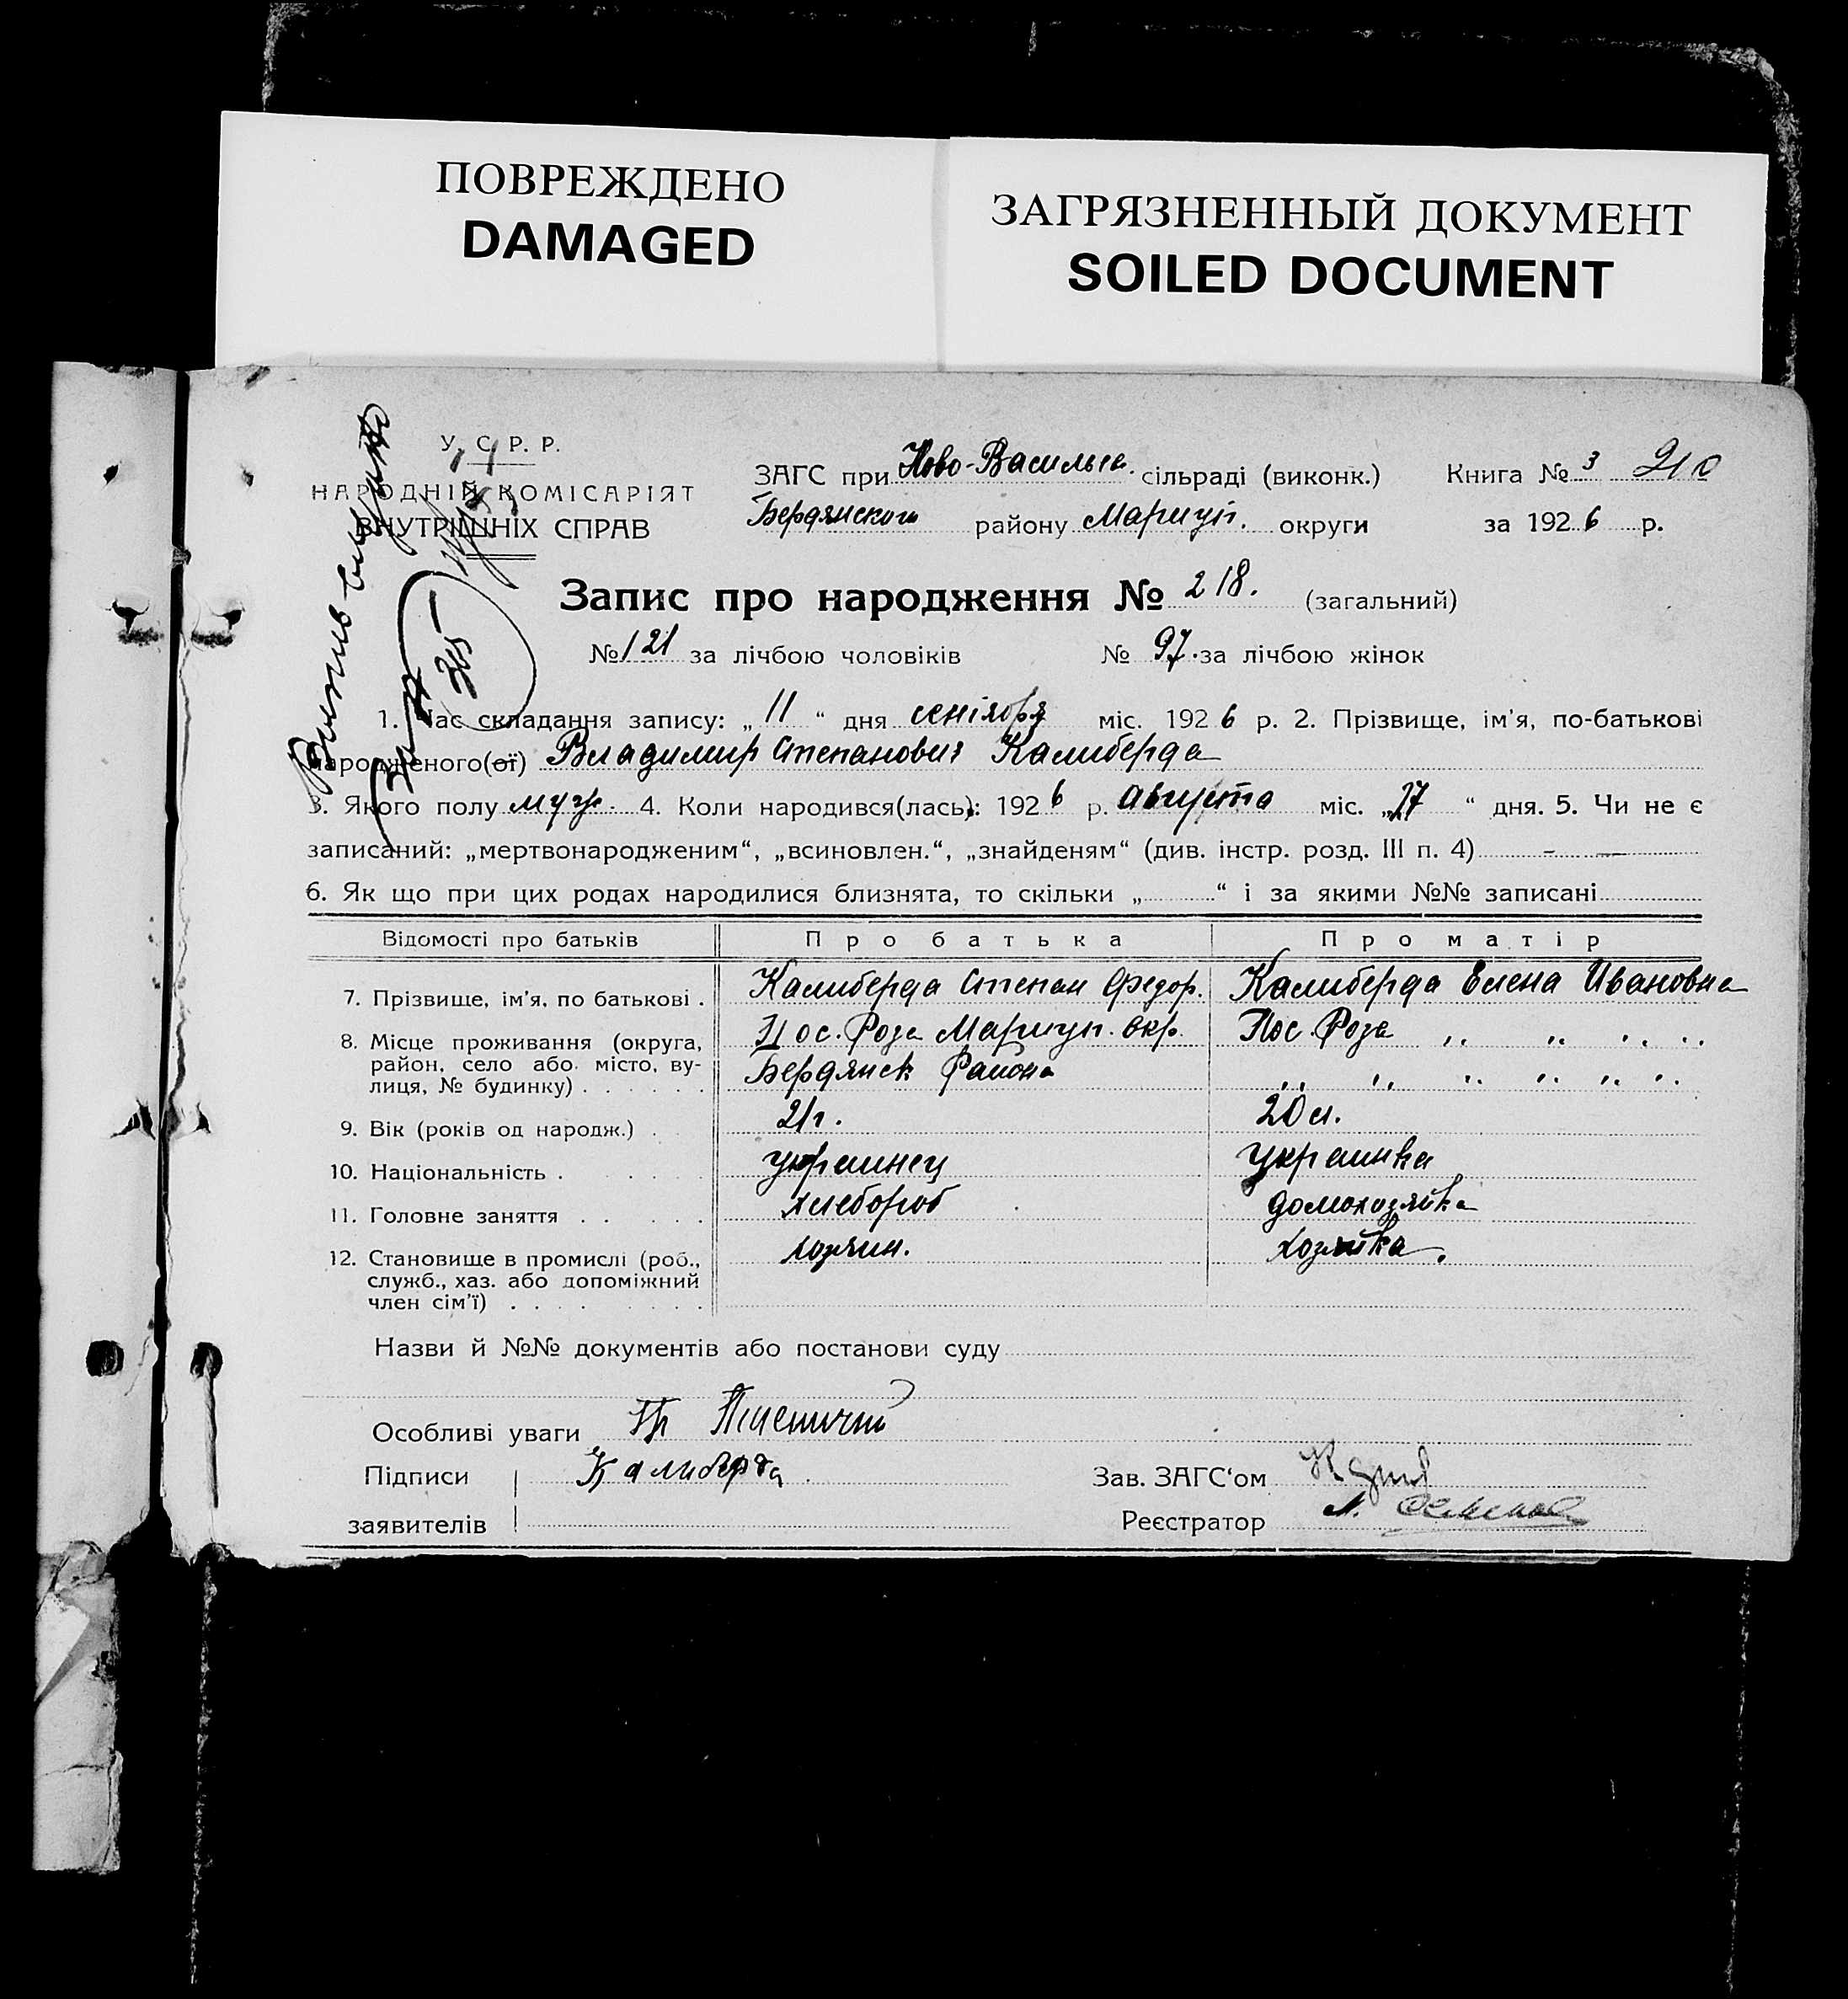 ПОВРЕЖДЕНО
DAMAGED
ЗАГРЯЗНЕННЫЙ ДОКУМЕНТ
SOILED DOCUMENT
У. С. Р. Р.
НАРОДНІЙ КОМІСАРІЯТ
ВНУТРІШНІХ СПРАВ
ЗАГС при Ново-Васильев. сільраді (виконк.) Книга № 3 210
Бердянского району Мариуп. округи за 1926 р.
Запис про народження № 218. (загальний)
№ 121 за лічбою чоловіків № 97. за лічбою жінок
1. Час складання запису: „ 11 “ дня сентября міс. 1926 р. 2. Прізвище, ім'я, по-батькові
народженого(ої) Владимир Степанович Калиберда
3. Якого полу муж. 4. Коли народився(лась): 1926 р. Августа міс. „27 “ дня. 5. Чи не є
записаний: „мертвонародженим“, „всиновлен.“, „знайденям“ (див. інстр. розд. III п. 4) - —
6. Як що при цих родах народилися близнята, то скільки „ “ і за якими №№ записані
Відомості про батьків Про батька Про матір
7. Прізвище, ім'я, по батькові . Калиберда Степан Федор. Калиберда Елена Ивановна
8. Місце проживання (округа, район, село або місто, вулиця, № будинку) Пос. Роза Мариуп. Окр. Пос. Роза „ „ „ „
Бердянск Района „ „ „ „ „ „
9. Вік (років од народж.) . 21 г. 20 л.
10. Національність . украинец украинка
11. Головне заняття . хлебороб домохозяйка
12. Становище в промислі (роб., хозяин. хозяйка.
служб., хаз. або допоміжний
член сім'ї)
Назви й №№ документів або постанови суду
Особливі уваги
Підписи Калиберда Зав. ЗАГС'ом
заявителів Реєстратор